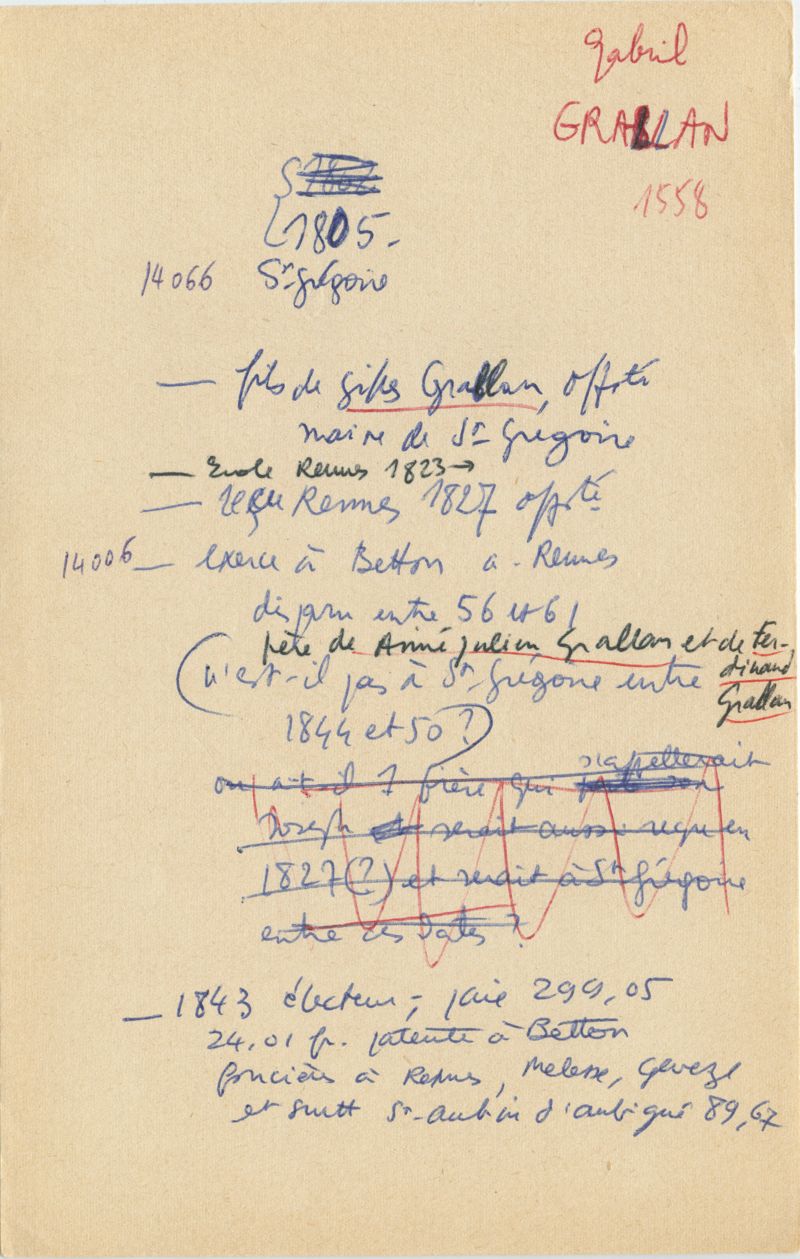 Gabriel
GRALLAN
1558
1805-
14066 St Grégoire
— fils de Gilles Grallan, offsté
maire de St Grégoire
— Ecole Rennes 1823 →
— reçu Rennes 1827 offsté
14006 — exerce à Betton a - Rennes
disparu entre 56 et 61
père de Aimé Julien Grallan et de Fer-
dinand
Grallan
(n'est-il pas à St Grégoire entre
1844 et 50 ?)
s'appellerait
ou a-t-il 1 frère qui
Joseph serait aussi reçu en
1827 (?) et serait à St Grégoire
entre ces dates ?
— 1843 électeur -, paie 299,05
24,01 fr. patente à Betton
foncières à Rennes, Melesse, Gevezé
et surtt St-aubin d'aubigné 89,67